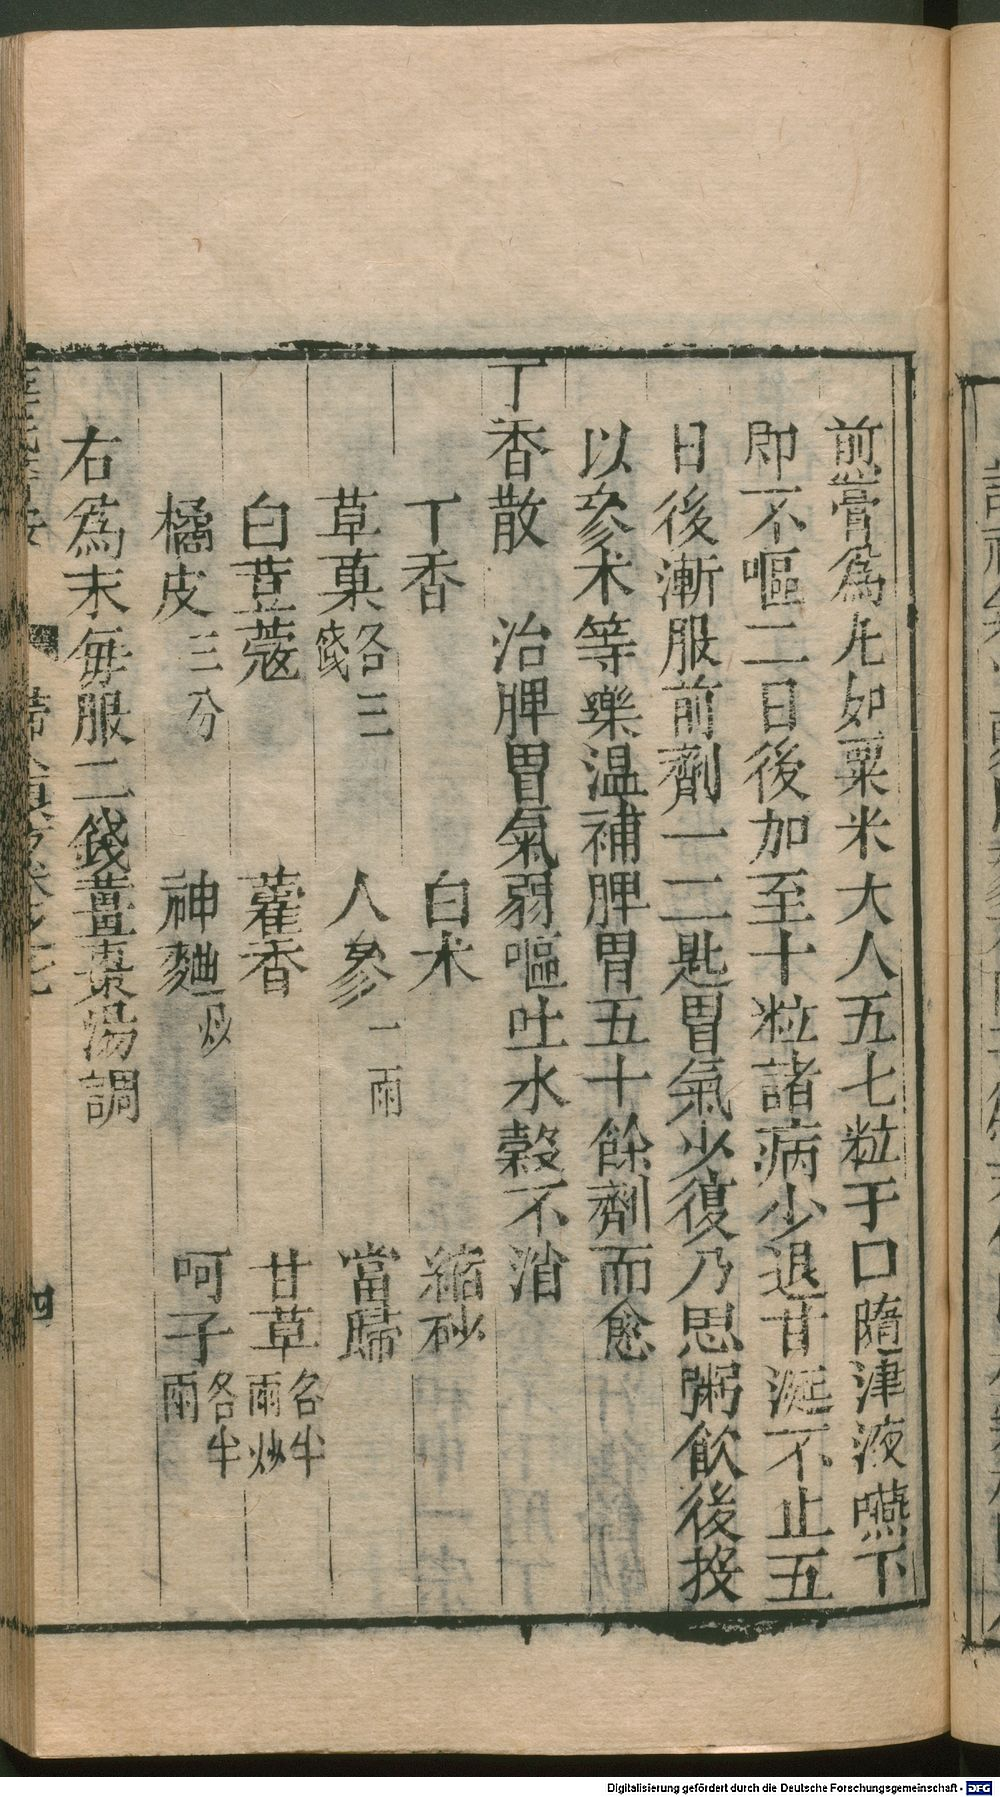 煎膏爲丸如粟米大人五七粒于口隨津液嚥下
即不嘔二日後加至十粒諸病少退甘涎不止五
日後漸服前劑一二匙胃氣少復乃思粥飲後投
以參术等藥温補脾胃五十餘劑而愈
丁香散　治脾胃氣弱嘔吐水榖不消
丁香　白术　縮砂
草菓各三錢　人參一兩　當歸
白荳蔻　藿香　甘草各半兩炒
橘皮三分　神麯炒　呵子各半兩
右爲末每服二錢薑棗湯調
四
Digitalisierung gefördert durch die Deutsche Forschungsgemeinschaft - DFG